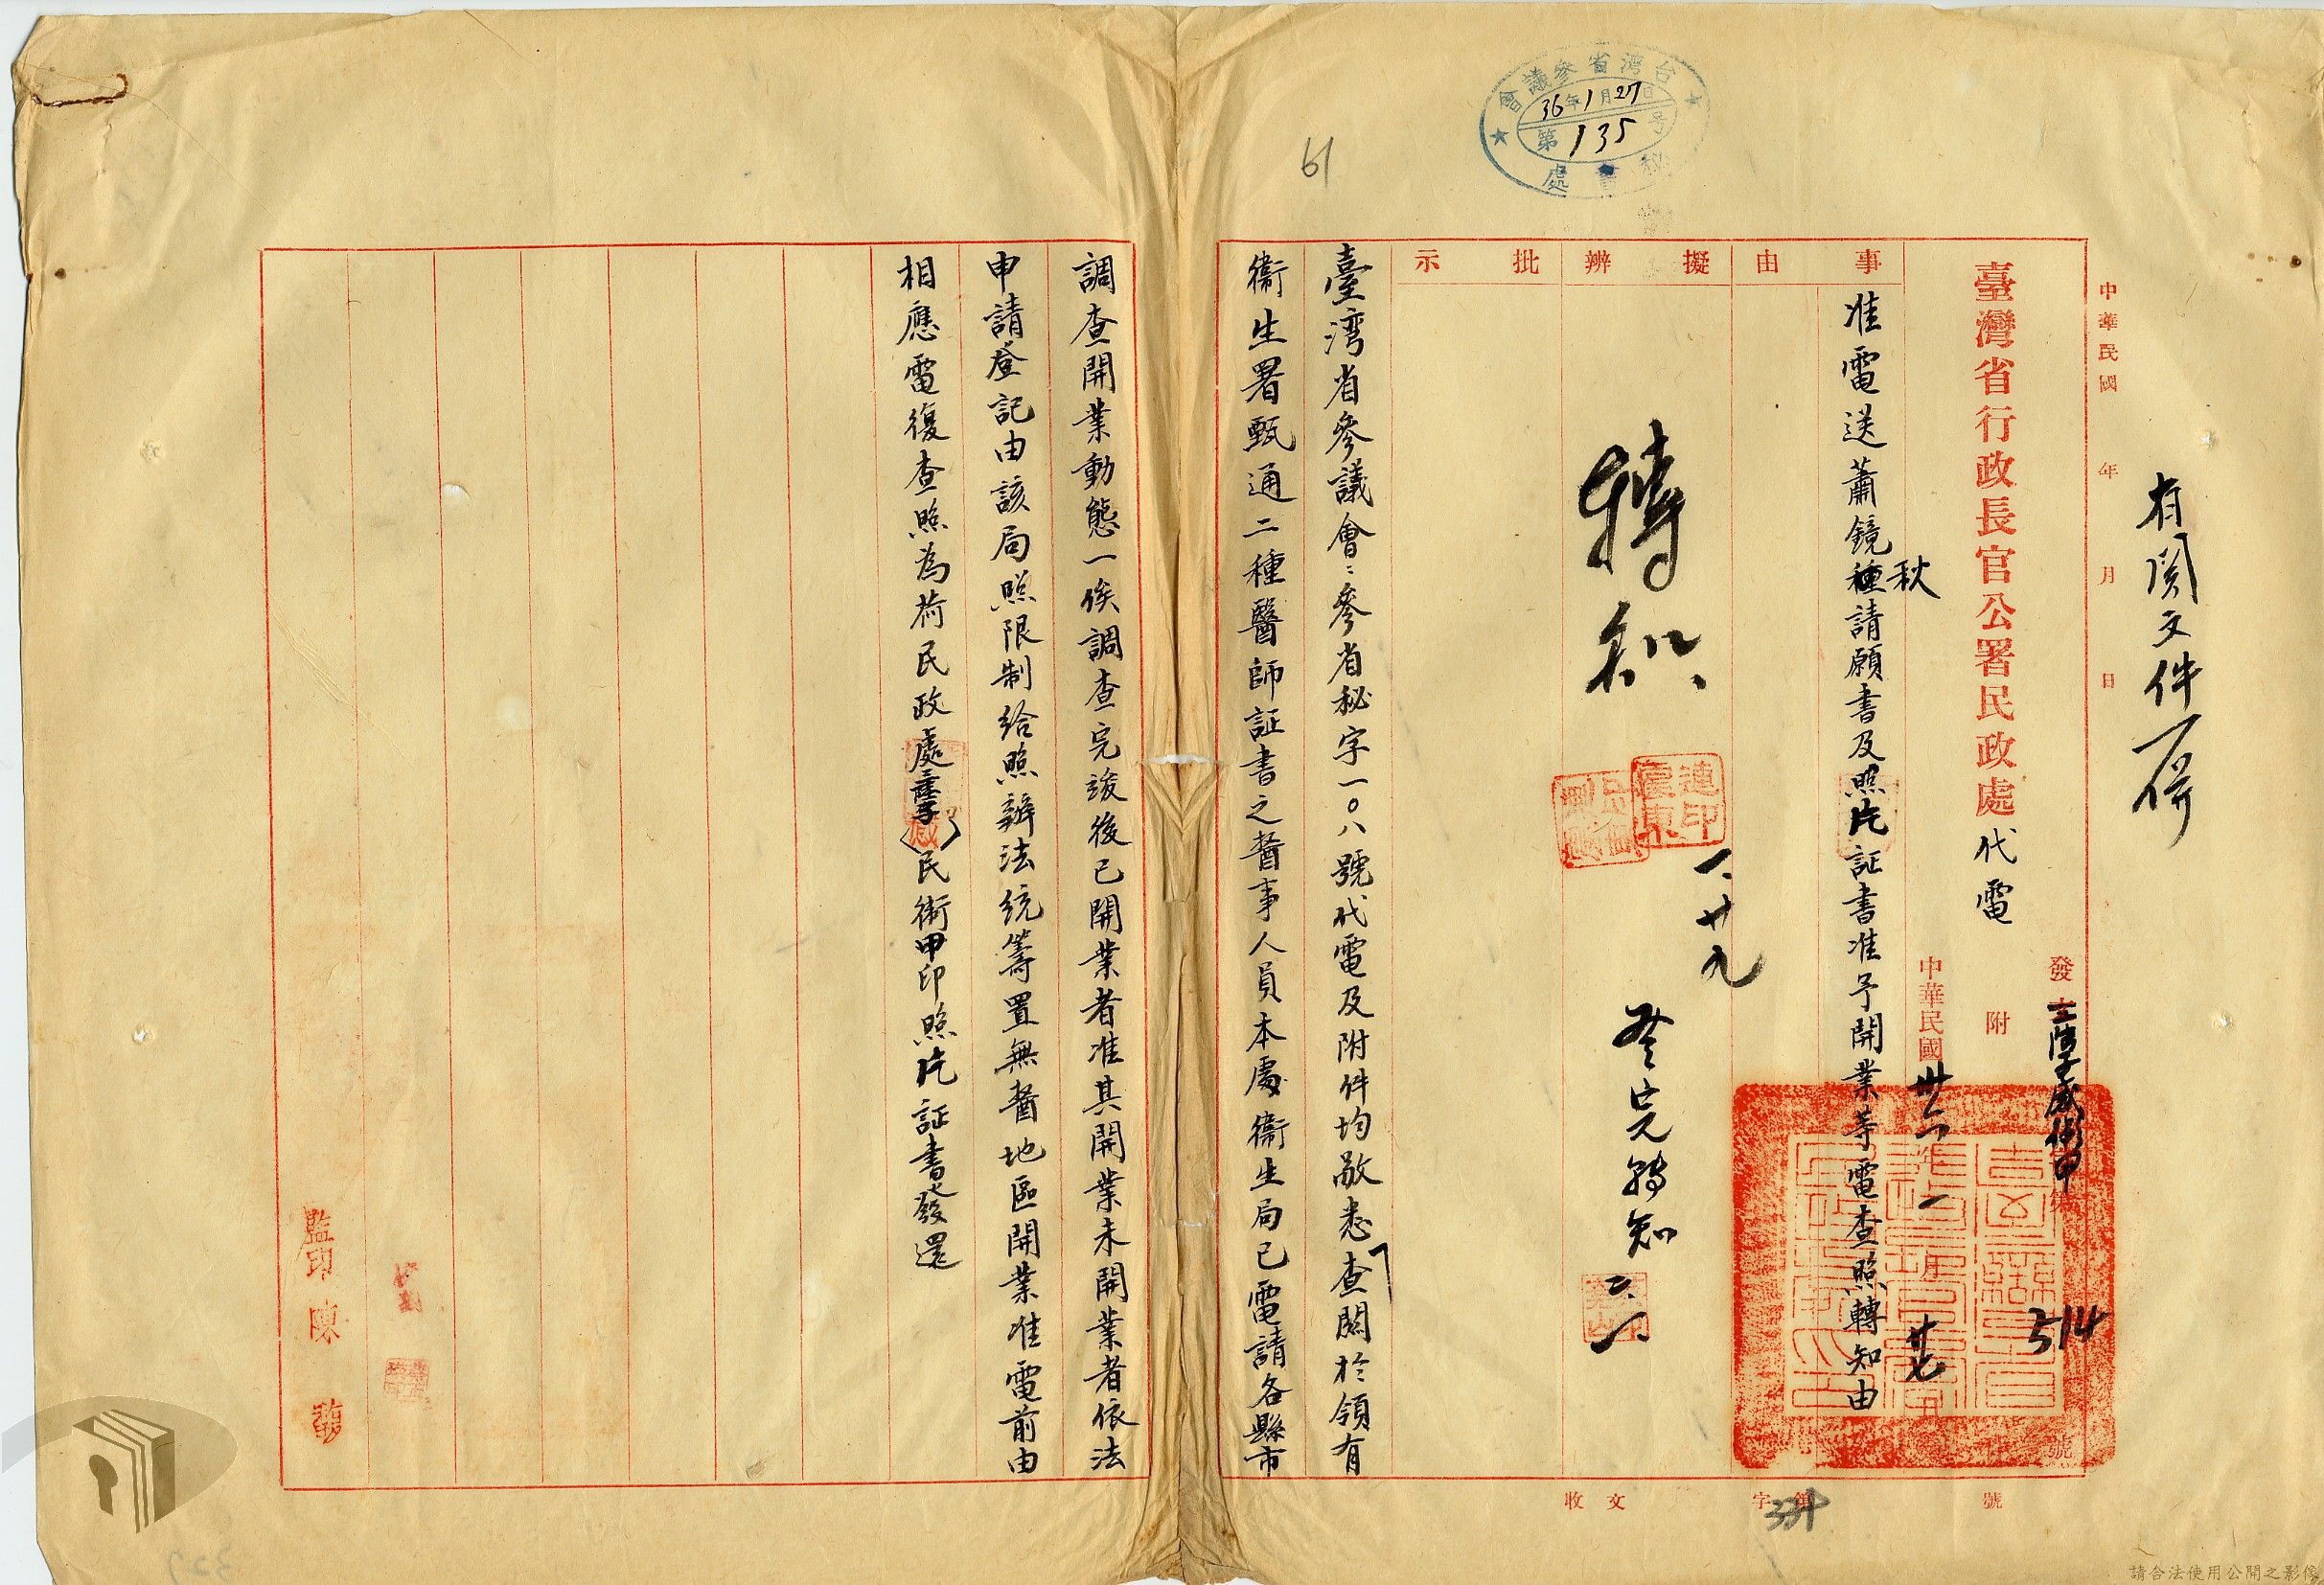 台湾省參議會
36年1月27日
第135号
秘書處
61
有関文件一併
中華民國 年 月 日
臺灣省行政長官公署民政處代電
發文
附
第 號
514
中華民國卅六年一月廿七日
事由
准電送蕭鏡秋種請願書及照片証書准予開業等電查照轉知由
擬辦
轉知
一、廿九
二、一
批示
臺湾省參議會：參省秘字一〇八號代電及附件均敬悉查關於領有
衛生署甄通二種醫師証書之醫事人員本處衛生局已電請各縣市
調查開業動態一俟調查完竣後已開業者准其開業未開業者依法
申請登記由該局照限制給照辦法統籌置無醫地區開業准電前由
相應電復查照為荷民政處 民術甲印照片証書發還
監印陳
收文 字第 號
334
請合法使用公開之影像